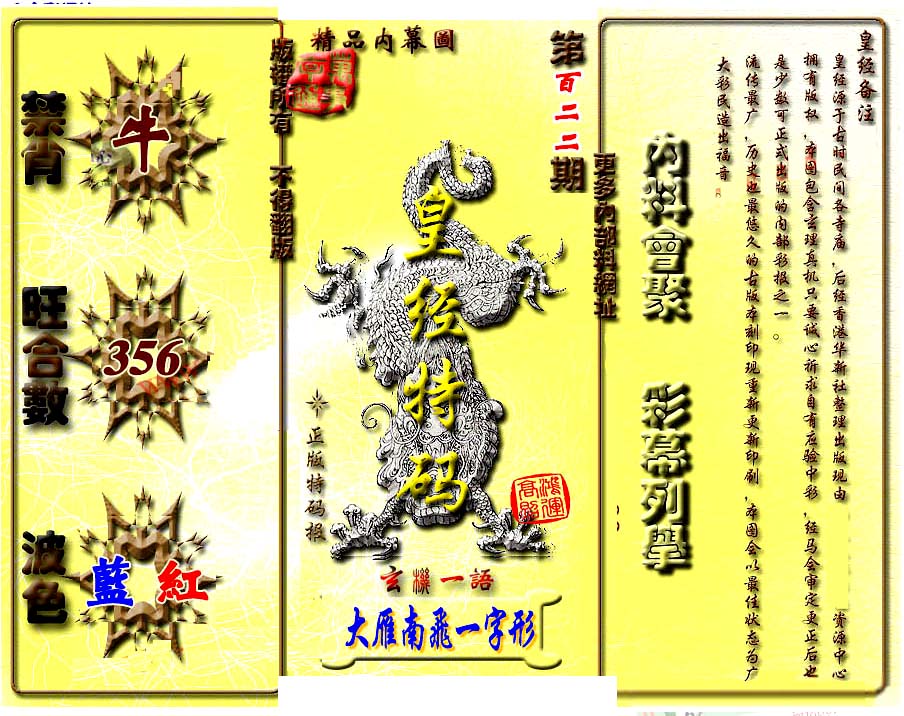 皇经备注
皇经源于古时民间各寺庙，后经香港华新社整理出版现由 资源中心
拥有版权，本图包含玄理真机只要诚心祈求自有应验中彩，经马会审定更正后也
是少数可正式出版的内部彩报之一。
流传最广，历史也最悠久的古版本刻印现重新更新印刷，本图会以最佳状态为广
大彩民造出福音
内料會聚 彩幕列舉
更多內部料網址
第百二二期
精品内幕圖
皇经特码
正版特码报
鸿運高照
玄機一語
大雁南飛一字形
版權所有 不得翻版
禁肖
牛
旺合數
356
波色
藍 紅